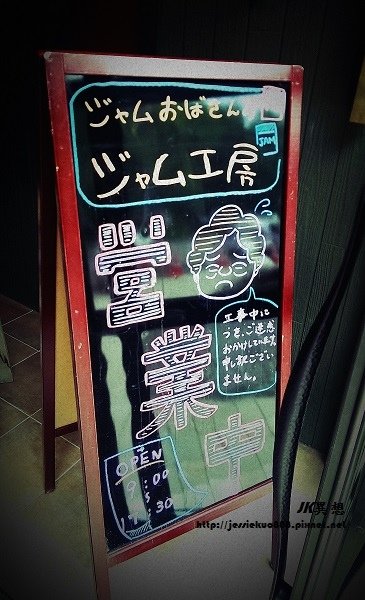 ジャムおばさんの
JAM
ジャム工房
営業中
工事中に
つき、ご迷惑
おかけしています
申し訳ござい
ません。
OPEN
9:00
17:30
JK異想
http://jessiekuo888.pixnet.net